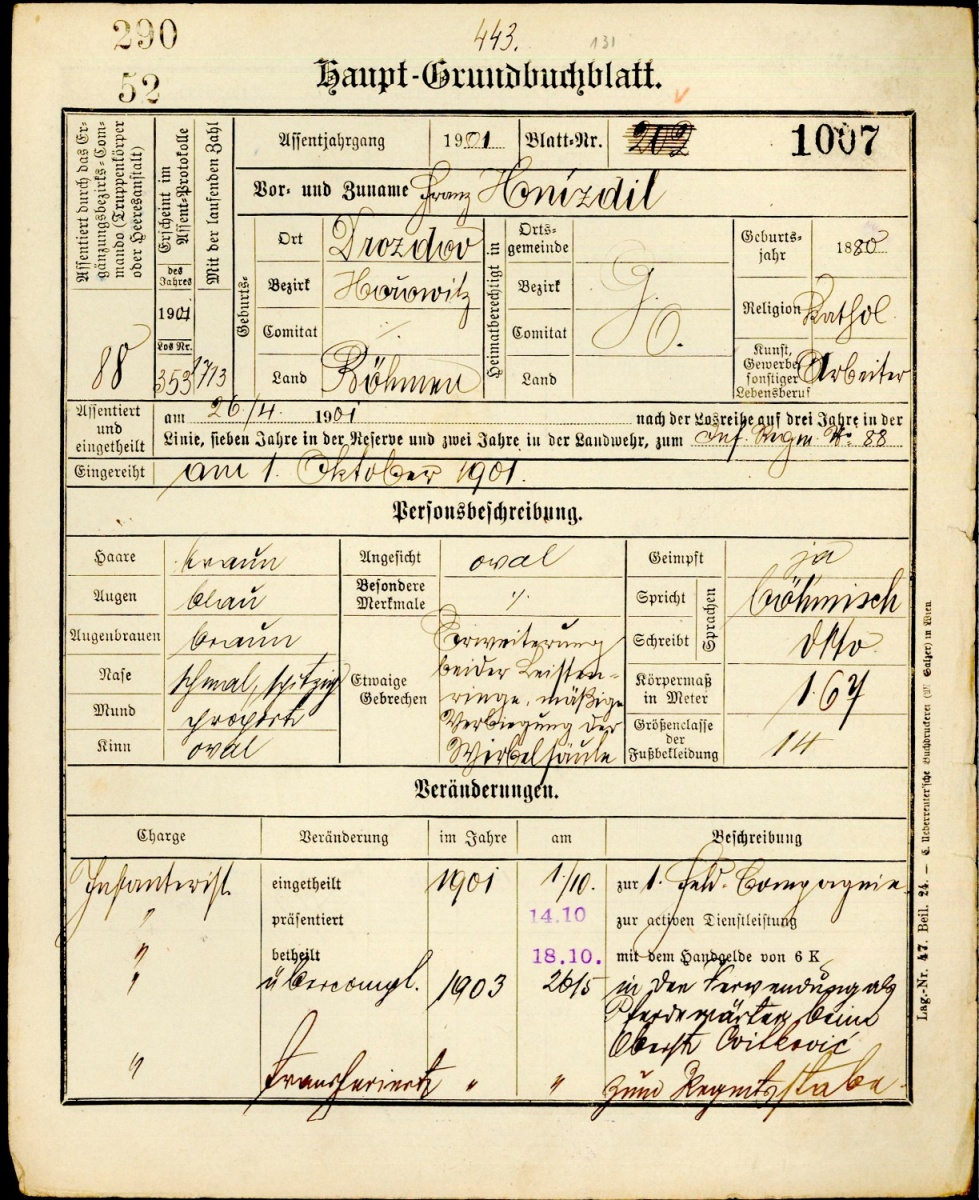 290
443.
131
52
Haupt-Grundbuchblatt.
Assentiert durch das Er-
gänzungsbezirks-Com-
mando (Truppenkörper
oder Heeresanstalt)
88
Erscheint im
Assent-Protokolle
des
Jahres
1901
Los Nr.
353
Mit der laufenden Zahl
1713
Assentjahrgang 1901 Blatt-Nr. 202 1007
Vor- und Zuname Franz Hnízdil
Geburts-
Ort Drozdov
Bezirk Hořowitz
Comitat ·/.
Land Böhmen
Heimatberechtigt in
Orts-
gemeinde
Bezirk
Comitat
Land
G. O.
Geburts-
jahr 1880
Religion Kathol.
Kunst,
Gewerbe
sonstiger
Lebensberuf
Arbeiter
Assentiert
und
eingetheilt
am 26/4. 1901 nach der Losreihe auf drei Jahre in der
Linie, sieben Jahre in der Reserve und zwei Jahre in der Landwehr, zum Inf. Regm. No 88
Eingereiht am 1. Oktober 1901.
Personsbeschreibung.
Haare braun
Augen blau
Augenbrauen braun
Nase schmal, spitzig
Mund proport.
Kinn oval
Angesicht oval
Besondere
Merkmale ·/.
Etwaige
Gebrechen
Erweiterung
beider Leisten-
ringe, mäßige
Verbiegung der
Wirbelsäule
Geimpft ja
Sprachen
Spricht böhmisch
Schreibt dtto.
Körpermaß
in Meter 1.67
Größenclasse
der
Fußbekleidung 14
Veränderungen.
Charge Veränderung im Jahre am Beschreibung
Infanterist eingetheilt 1901 1/10. zur 1. Feld-Compagnie
" präsentiert 14.10 zur activen Dienstleistung
" betheilt 18.10. mit dem Handgelde von 6 K
" übercompl. 1903 26/5 in der Verwendung als
Pferdewärter beim
Oberst Cvitković
" transferiert " " zum Regmtsstabe.
Lag.-Nr. 47. Beil. 24. — C. Ueberreuter'sche Buchdruckerei (M. Salzer) in Wien